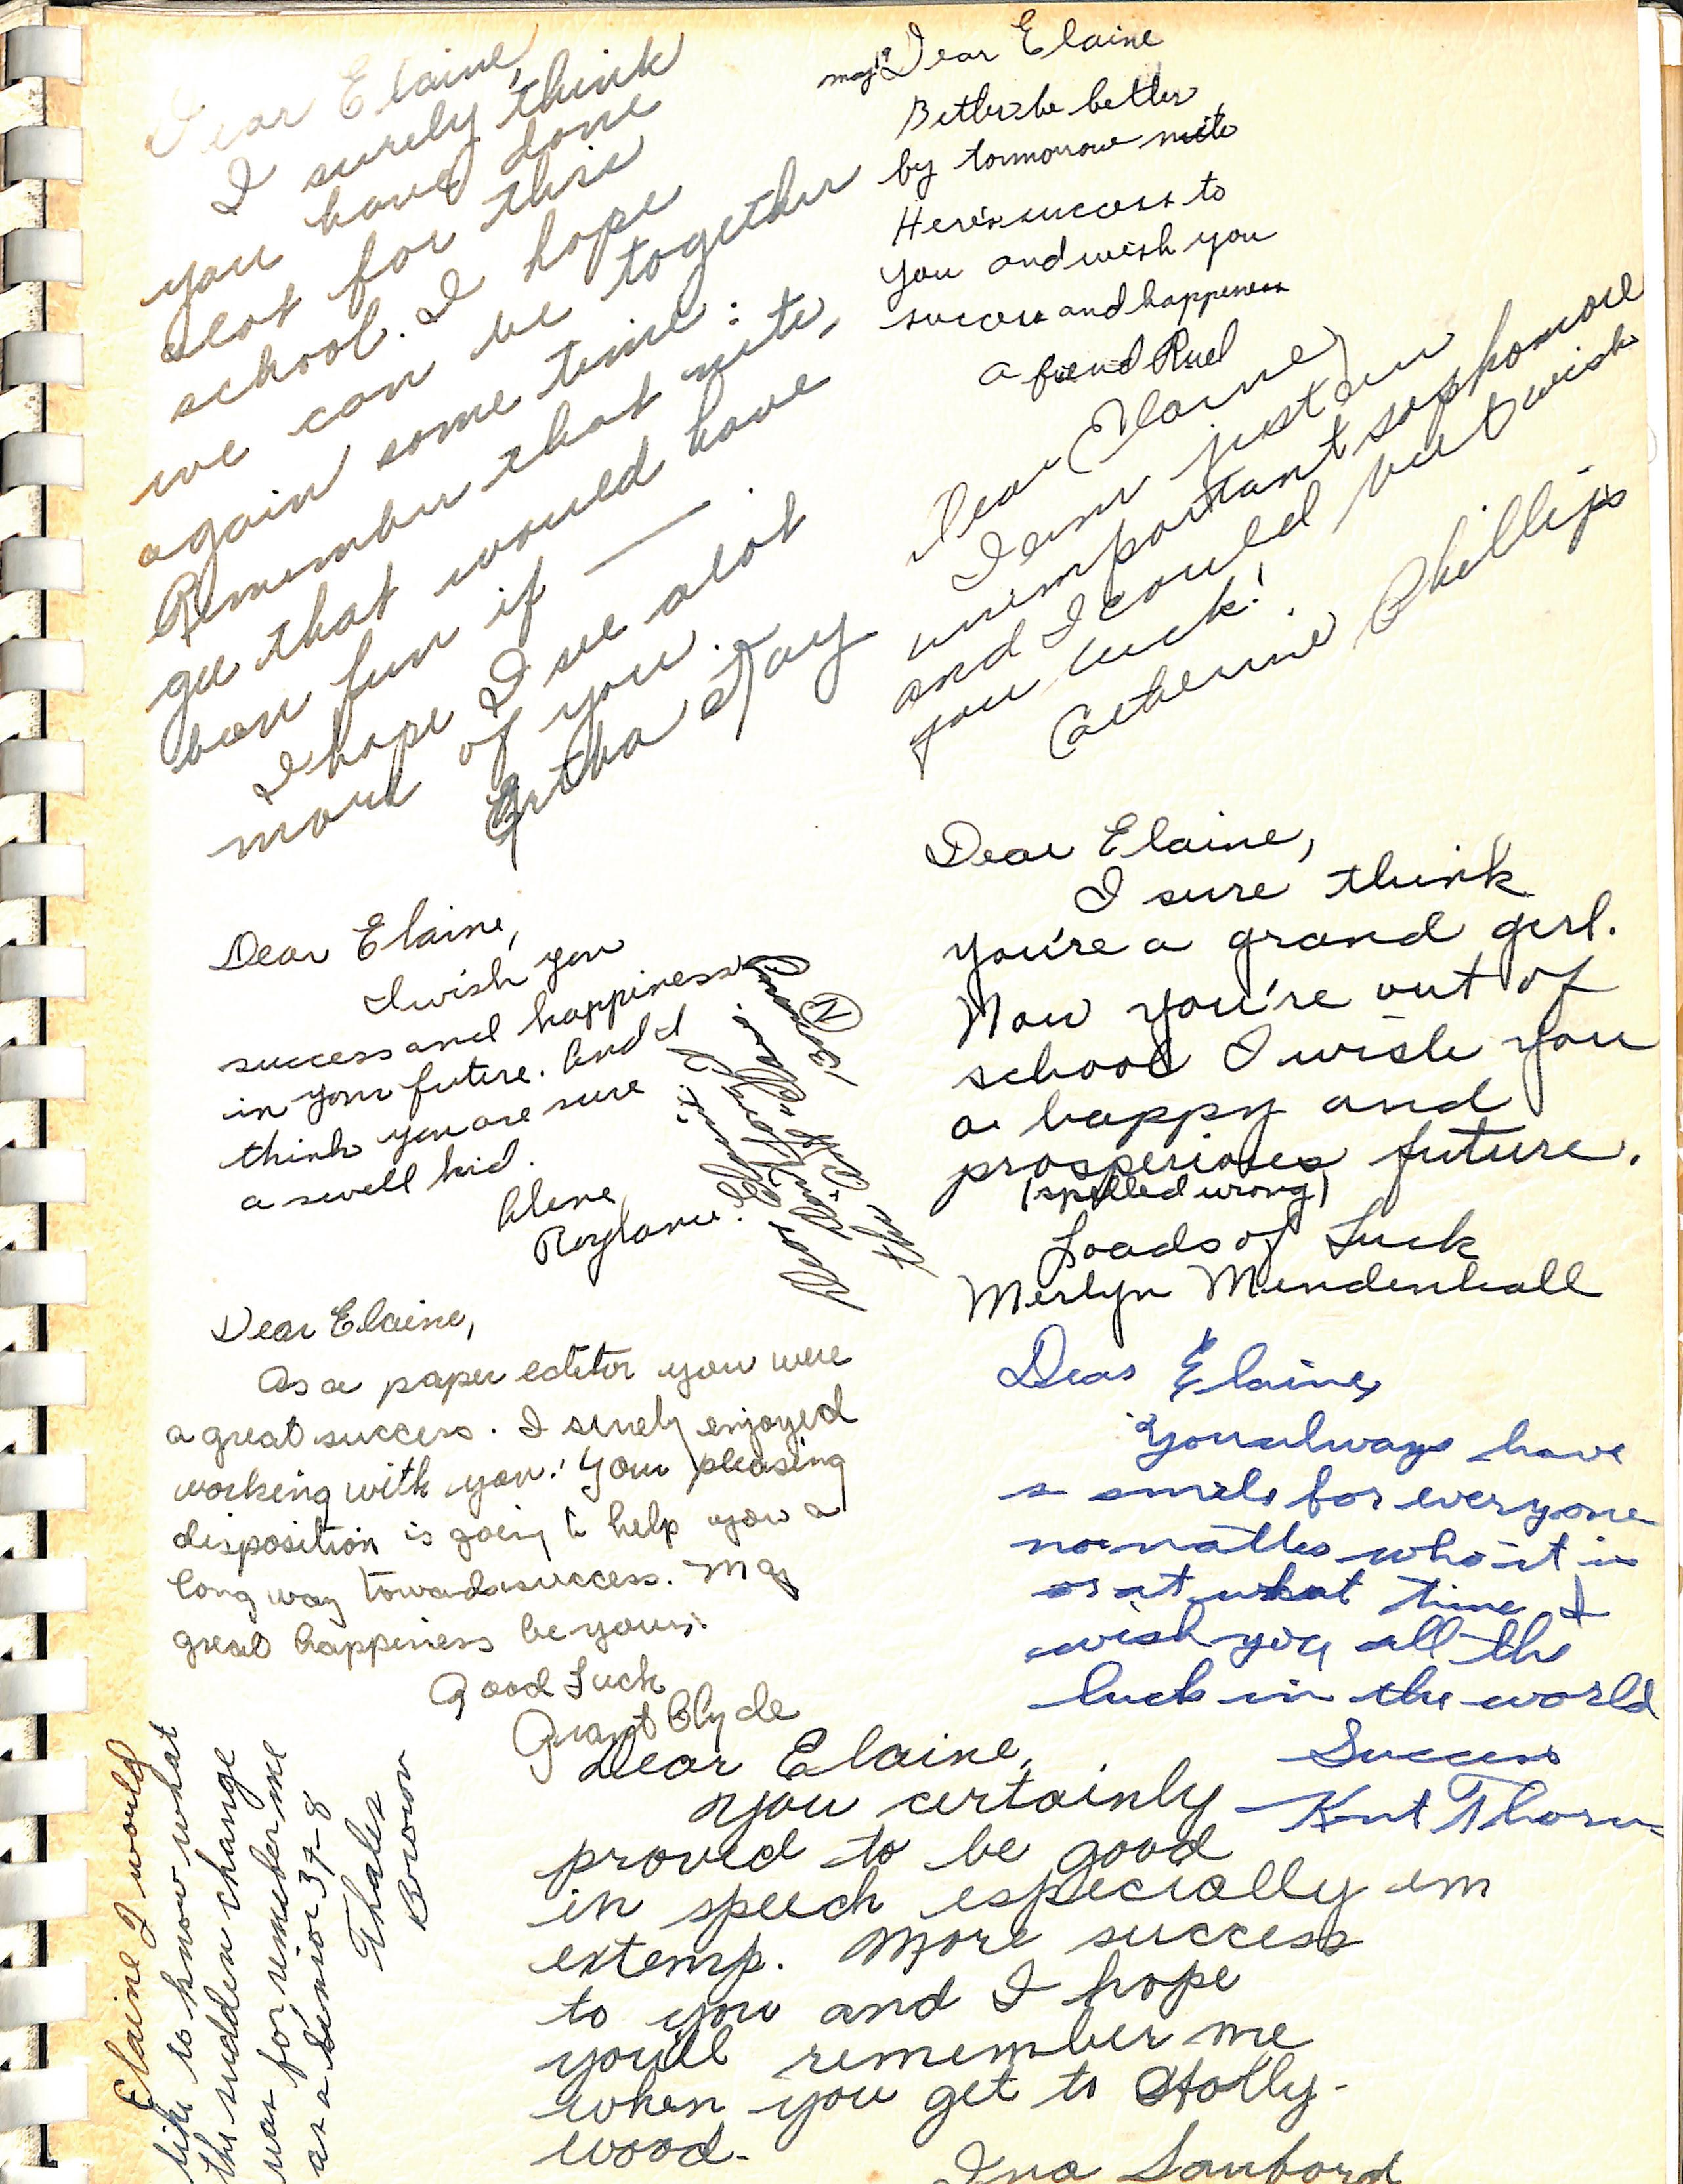 Dear Elaine,
I surely think
you have done
alot for this
school. I hope
we can be together
again some time:
Remember that nite,
gee that would have
been fun if —.
I hope I see alot
more of you.
Ertha Kay
may 19 Dear Elaine
Better be better
by tommorow nite
Here's success to
you and wish you
success and happiness
a friend Ruel
Dear Elaine,
I am just an
unimportant sophomore
and I could but wish
you luck!
Catherine Phillips
Dear Elaine,
I wish you
success and happiness
in your future. And I
think you are sure
a swell kid.
Alene
Roylance.
Dear Elaine,
I sure think
you're a grand girl.
Now you're out of
school I wish you
a happy and
prosperioues future.
(spelled wrong)
Loads of Luck
Merlyn Mendenhall
Dear Elaine,
As a paper editor you were
a great success. I surely enjoyed
working with you. Your pleasing
disposition is going to help you a
long way towards success. May
great happiness be yours.
Good Luck
Grant Clyde
Dear Elaine,
You always have
a smile for everyone
no matter who it is
or at what time I
wish you all the
luck in the world
Success
Kent Thorn
Elaine I would
like to know what
the sudden change
was for remember me
as a senior 37-8
Thales
Brown
Dear Elaine,
You certainly
proved to be good
in speech especially em
extemp. More success
to you and I hope
you'll remember me
when you get to Holly-
wood.
Ina Sanford